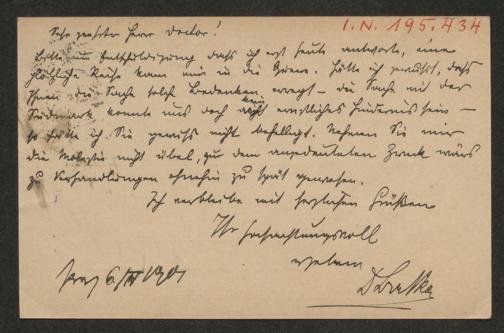 I.N. 195.434
Sehr geehrter Herr Doctor!
Bitte um Entschuldigung dass ich erst heute antworte, eine
plötzliche Reise kam mir in die Quere. Hätte ich gewusst, dass
Ihnen die Sache solche Bedenken erregt – die Sache mit der
Südmark konnte uns doch kein ernstliches Hindernis sein –
so hätte ich Sie gewiss nicht behelligt. Nehmen Sie mir
die Molestie nicht übel, zu dem angedeuteten Zweck wäre
zu Verhandlungen ohnehin zu spät gewesen.
Ich verbleibe mit herzlichen Grüßen
Ihr hochachtungsvoll
ergebener